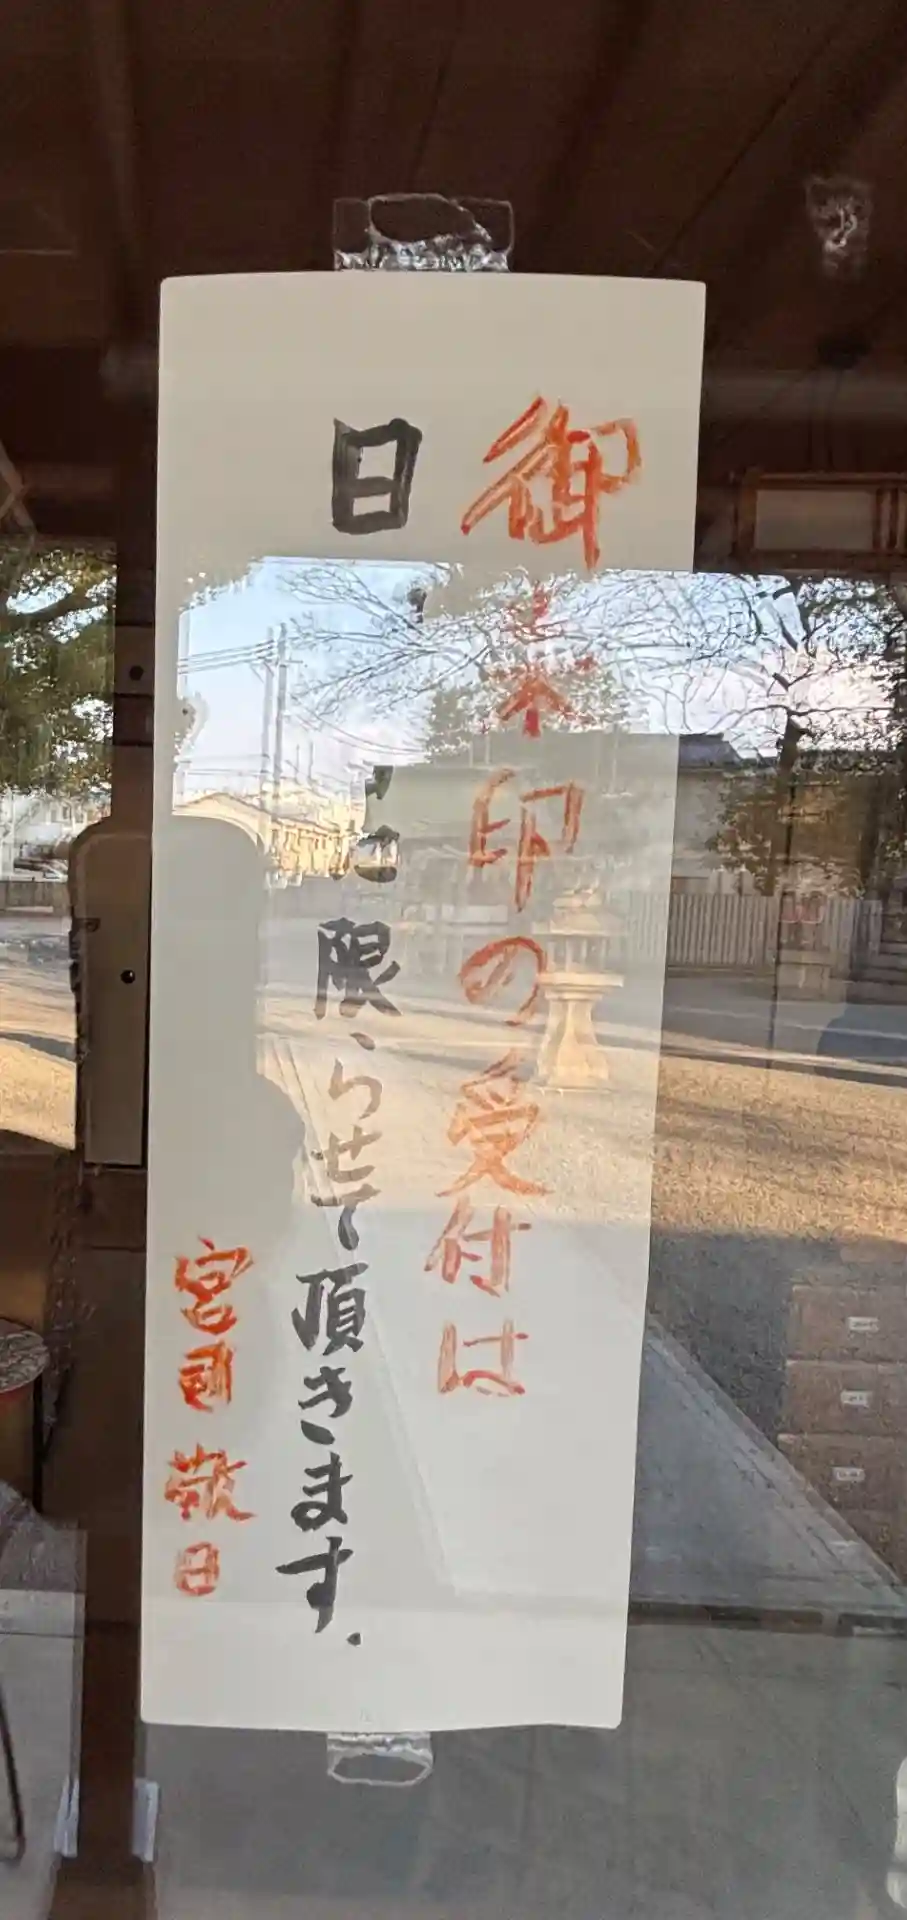 御朱印の受付は
日 に限らせて頂きます.
宮司 敬白